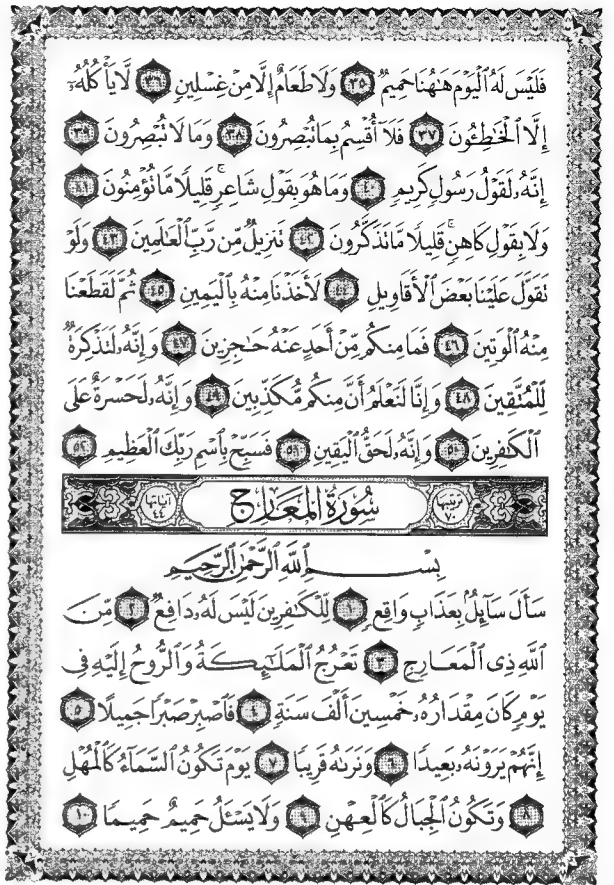 فَلَيْسَ لَهُ الْيَوْمَ هَٰهُنَا حَمِيمٌ ٣٥ وَلَا طَعَامٌ إِلَّا مِنْ غِسْلِينٍ ٣٦ لَّا يَأْكُلُهُۥ
إِلَّا الْخَٰطِـُٔونَ ٣٧ فَلَآ أُقْسِمُ بِمَا تُبْصِرُونَ ٣٨ وَمَا لَا تُبْصِرُونَ ٣٩
إِنَّهُۥ لَقَوْلُ رَسُولٍ كَرِيمٍ ٤٠ وَمَا هُوَ بِقَوْلِ شَاعِرٍ ۚ قَلِيلًا مَّا تُؤْمِنُونَ ٤١
وَلَا بِقَوْلِ كَاهِنٍ ۚ قَلِيلًا مَّا تَذَكَّرُونَ ٤٢ تَنزِيلٌ مِّن رَّبِّ الْعَٰلَمِينَ ٤٣ وَلَوْ
تَقَوَّلَ عَلَيْنَا بَعْضَ الْأَقَاوِيلِ ٤٤ لَأَخَذْنَا مِنْهُ بِالْيَمِينِ ٤٥ ثُمَّ لَقَطَعْنَا
مِنْهُ الْوَتِينَ ٤٦ فَمَا مِنكُم مِّنْ أَحَدٍ عَنْهُ حَٰجِزِينَ ٤٧ وَإِنَّهُۥ لَتَذْكِرَةٌ
لِّلْمُتَّقِينَ ٤٨ وَإِنَّا لَنَعْلَمُ أَنَّ مِنكُم مُّكَذِّبِينَ ٤٩ وَإِنَّهُۥ لَحَسْرَةٌ عَلَى
الْكَٰفِرِينَ ٥٠ وَإِنَّهُۥ لَحَقُّ الْيَقِينِ ٥١ فَسَبِّحْ بِاسْمِ رَبِّكَ الْعَظِيمِ ٥٢
ترتيبها ٧٠ سُورَةُ المَعَارِج آياتها ٤٤
بِسْمِ اللَّهِ الرَّحْمَٰنِ الرَّحِيمِ
سَأَلَ سَآئِلٌۢ بِعَذَابٍ وَاقِعٍ ١ لِّلْكَٰفِرِينَ لَيْسَ لَهُۥ دَافِعٌ ٢ مِّنَ
اللَّهِ ذِي الْمَعَارِجِ ٣ تَعْرُجُ الْمَلَٰٓئِكَةُ وَالرُّوحُ إِلَيْهِ فِي
يَوْمٍ كَانَ مِقْدَارُهُۥ خَمْسِينَ أَلْفَ سَنَةٍ ٤ فَاصْبِرْ صَبْرًا جَمِيلًا ٥
إِنَّهُمْ يَرَوْنَهُۥ بَعِيدًا ٦ وَنَرَىٰهُ قَرِيبًا ٧ يَوْمَ تَكُونُ السَّمَآءُ كَالْمُهْلِ
٨ وَتَكُونُ الْجِبَالُ كَالْعِهْنِ ٩ وَلَا يَسْـَٔلُ حَمِيمٌ حَمِيمًا ١٠